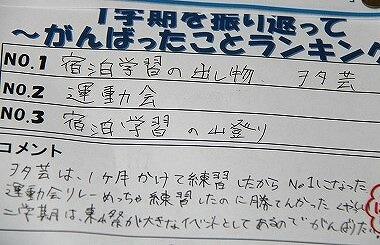 1学期を振り返って
〜がんばったことランキング
NO.1 宿泊学習の出し物、ヲタ芸
NO.2 運動会
NO.3 宿泊学習の山登り
コメント
ヲタ芸は、1ヶ月かけて練習したからNo1になった
運動会リレーめっちゃ練習したのに勝てんかった
二学期は、祭が大きなイベントとしてあるのでがんばりたい